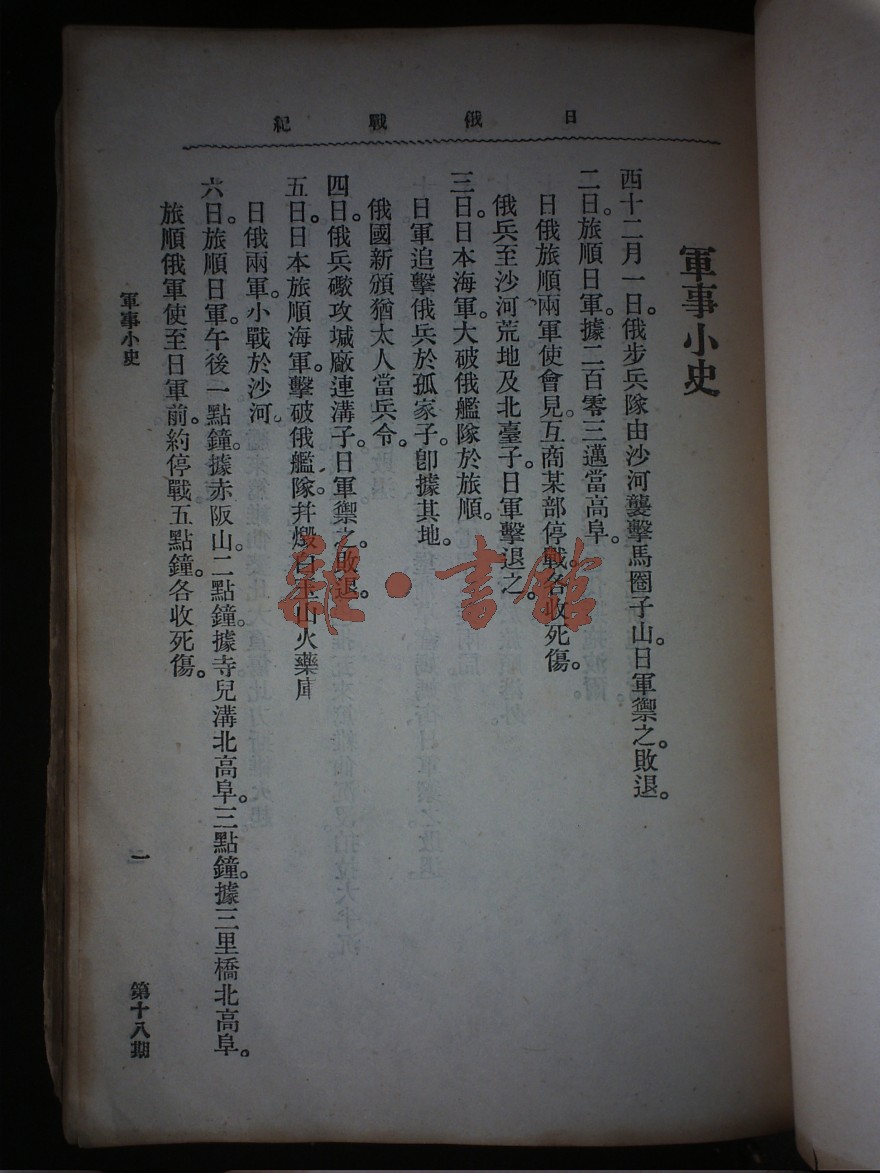 日俄戰紀
軍事小史
西十二月一日。俄步兵隊由沙河襲擊馬圈子山。日軍禦之。敗退。
二日。旅順日軍。據二百零三邁當高阜。
日俄旅順兩軍使會見。互商某部停戰。各收死傷。
俄兵至沙河荒地及北臺子。日軍擊退之。
三日。日本海軍。大破俄艦隊於旅順。
日軍追擊俄兵於孤家子。卽據其地。
俄國新頒猶太人當兵令。
四日。俄兵礮攻堿廠連溝子。日軍禦之。敗退。
五日。日本旅順海軍。擊破俄艦隊。幷燬白玉山火藥庫
日俄兩軍。小戰於沙河。
六日。旅順日軍。午後一點鐘。據赤阪山。二點鐘。據寺兒溝北高阜。三點鐘。據三里橋北高阜。
旅順俄軍使至日軍前。約停戰五點鐘。各收死傷。
軍事小史
一
第十八期
雜·書館